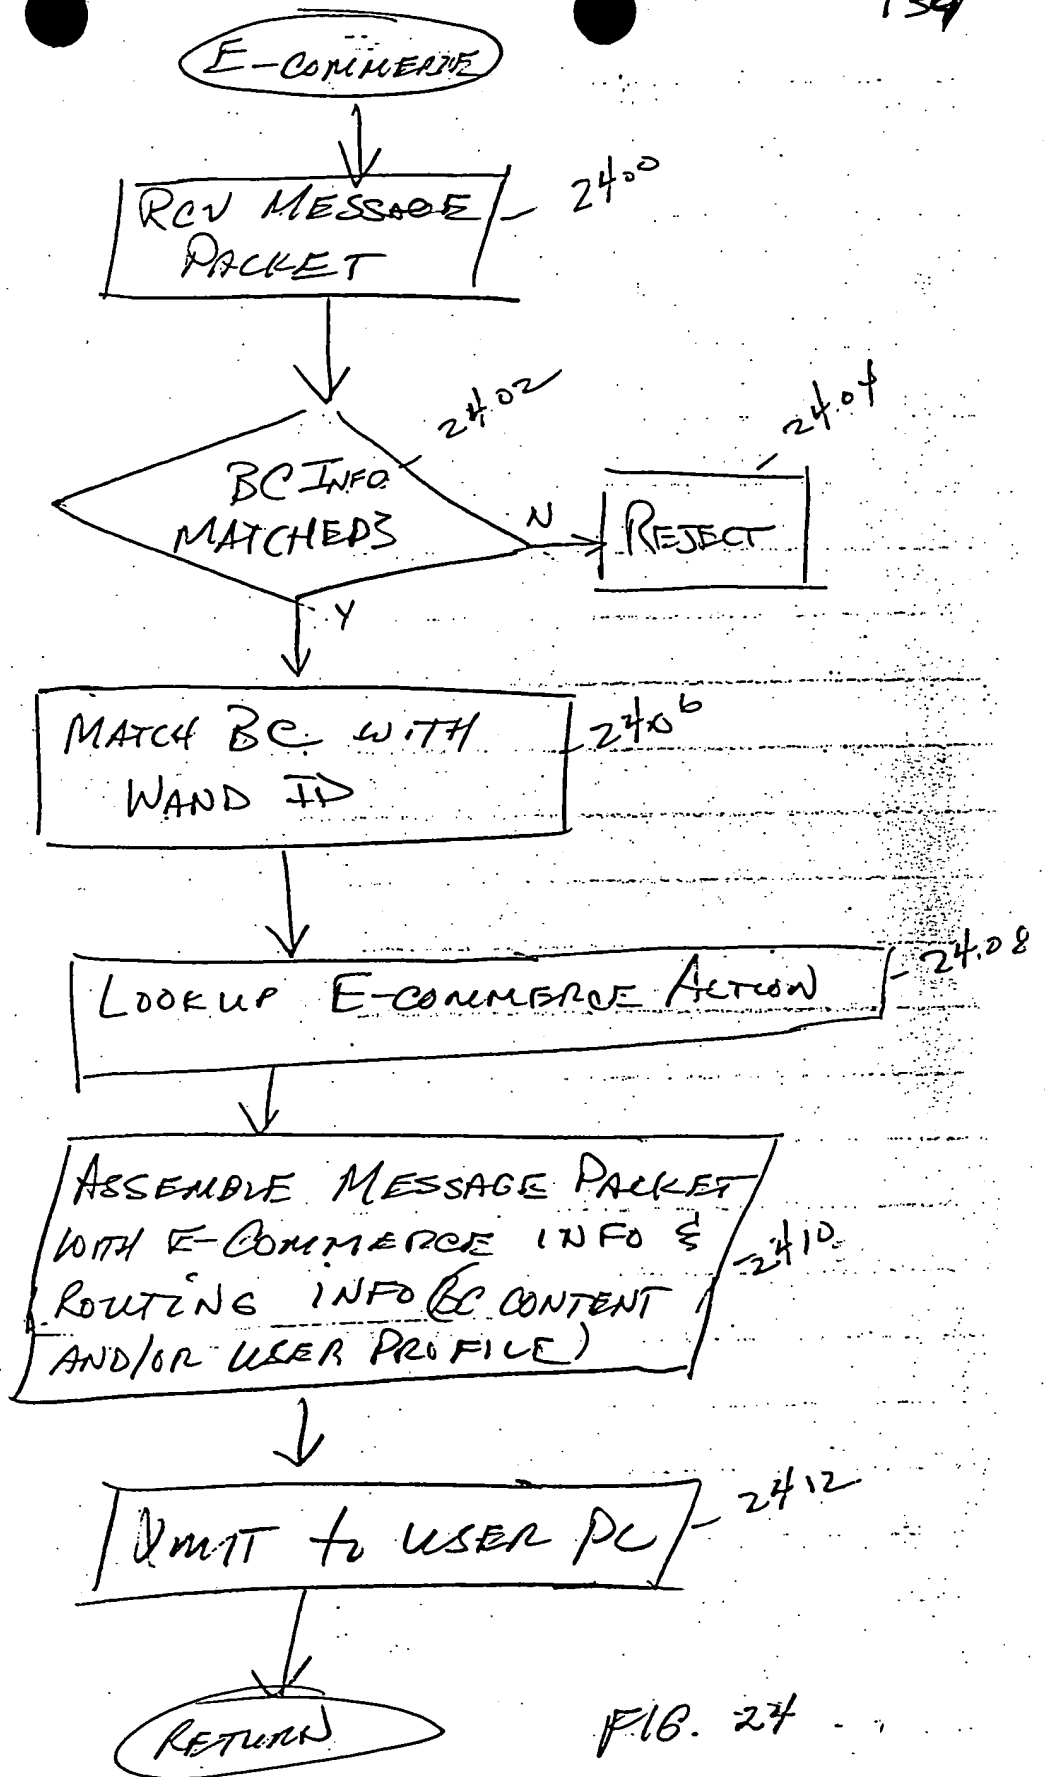 134
E-COMMERCE
RCV MESSAGE
PACKET
2400
BC INFO
MATCHED?
2402
N
REJECT
2404
Y
MATCH BC WITH
WAND ID
2406
LOOKUP E-COMMERCE ACTION
2408
ASSEMBLE MESSAGE PACKET
WITH E-COMMERCE INFO &
ROUTING INFO (BC CONTENT
AND/OR USER PROFILE)
2410
XMIT to USER PC
2412
RETURN
FIG. 24